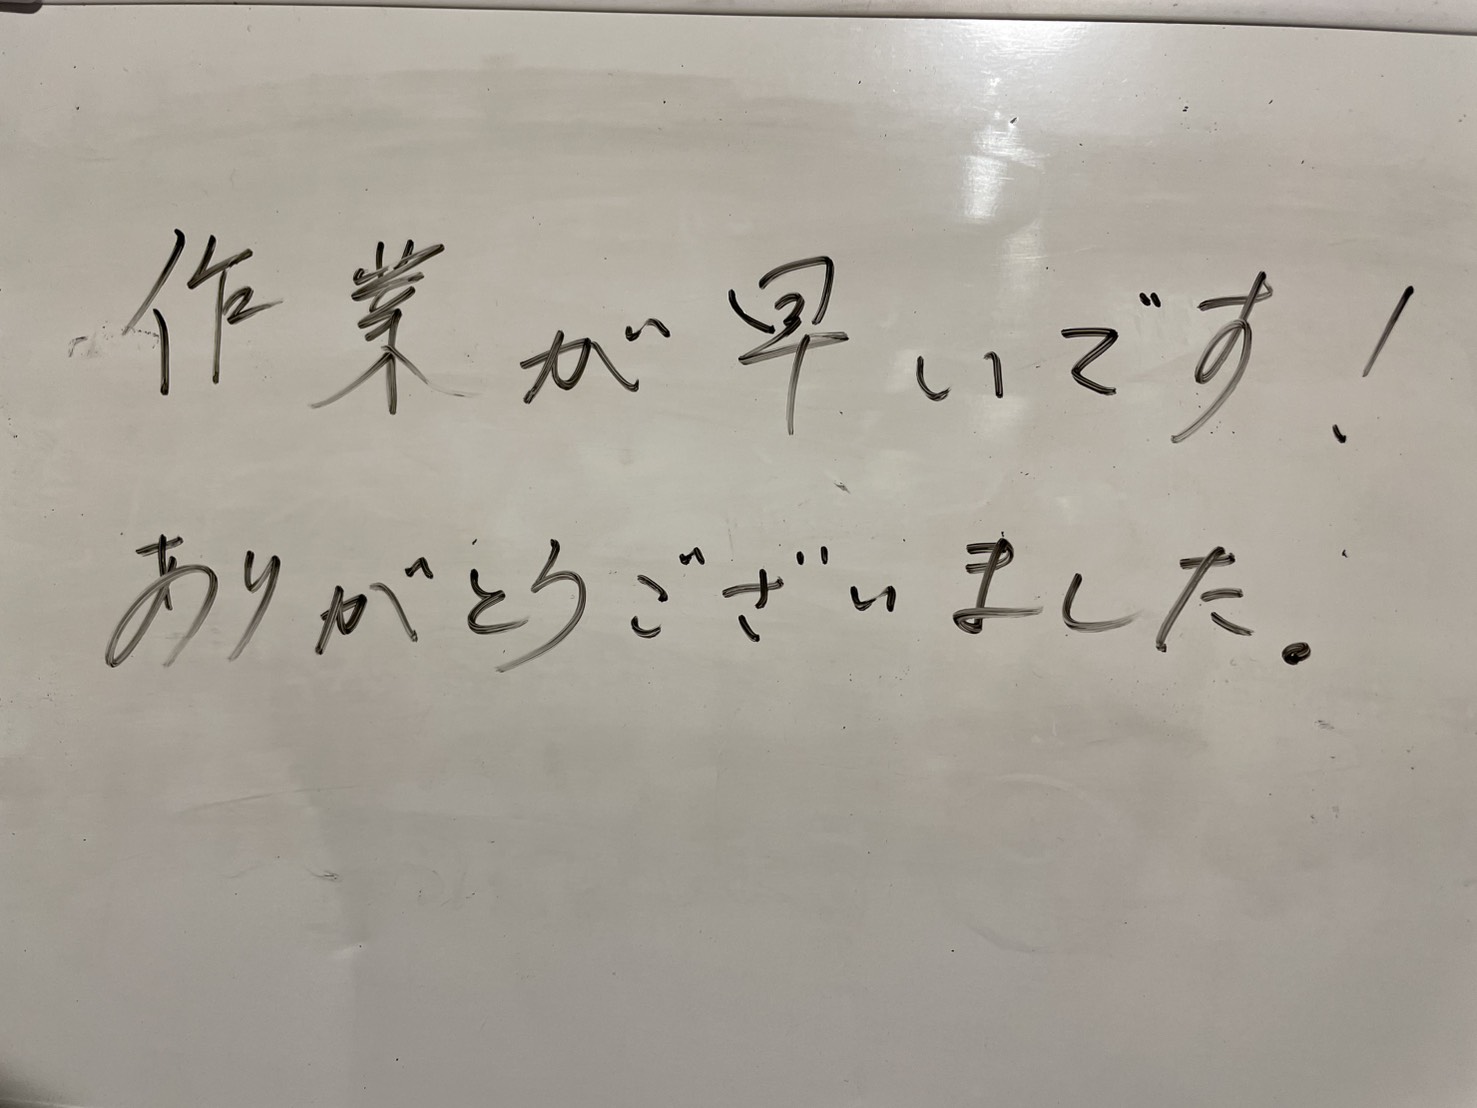 作業が早いです!
ありがとうございました。